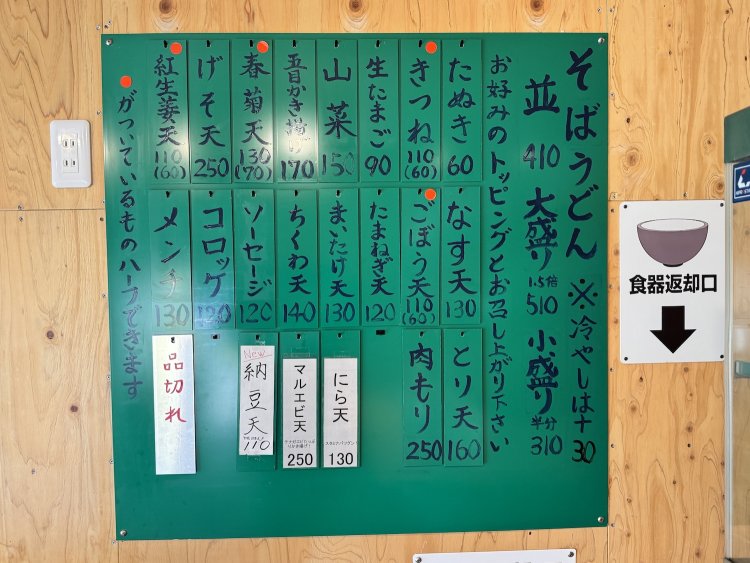 そばうどん ※冷やしは+30
並 410 大盛り 1.5倍 510 小盛り 半分 310
お好みのトッピングとお召し上がり下さい
たぬき 60
きつね 110 (60)
生たまご 90
山菜 150
五目かき揚げ 170
春菊天 130 (70)
げそ天 250
紅生姜天 110 (60)
なす天 130
ごぼう天 110 (60)
たまねぎ天 120
まいたけ天 130
ちくわ天 140
ソーセージ 120
コロッケ 120
メンチ 130
とり天 160
肉もり 250
にら天
スタミナバツグン
130
マルエビ天
250
New
納豆天
110
品切れ
●がついているものハーフできます
食器返却口